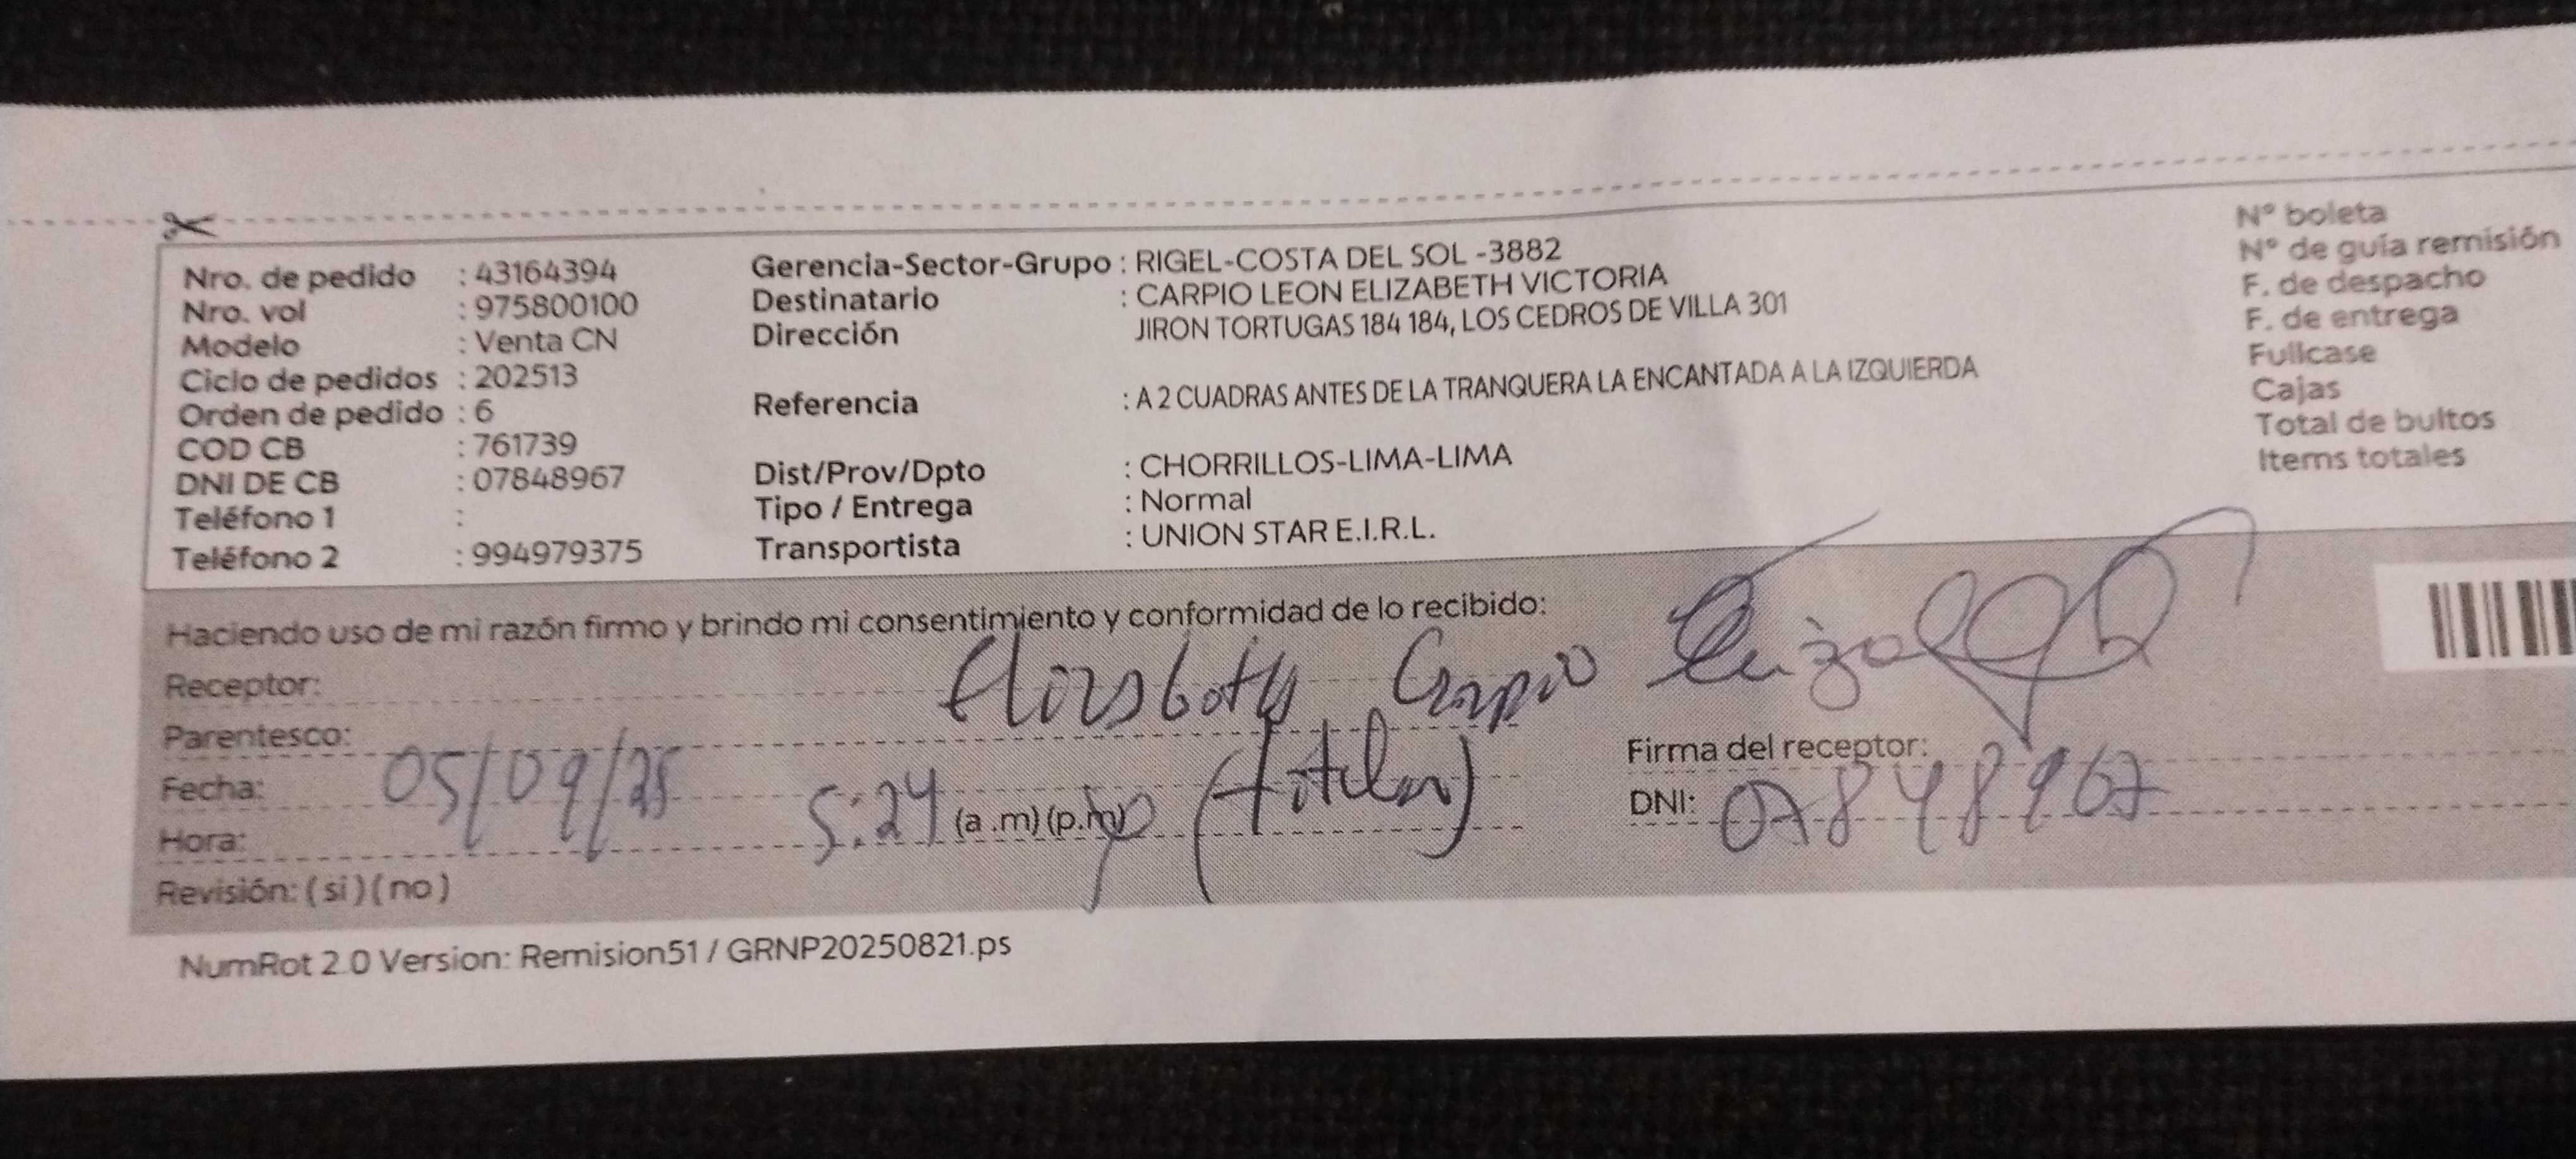 Nro. de pedido : 43164394
Nro. vol : 975800100
Modelo : Venta CN
Ciclo de pedidos : 202513
Orden de pedido : 6
COD CB : 761739
DNI DE CB : 07848967
Teléfono 1 :
Teléfono 2 : 994979375
Gerencia-Sector-Grupo : RIGEL-COSTA DEL SOL -3882
Destinatario : CARPIO LEON ELIZABETH VICTORIA
Dirección JIRON TORTUGAS 184 184, LOS CEDROS DE VILLA 301
Referencia : A 2 CUADRAS ANTES DE LA TRANQUERA LA ENCANTADA A LA IZQUIERDA
Dist/Prov/Dpto : CHORRILLOS-LIMA-LIMA
Tipo / Entrega : Normal
Transportista : UNION STAR E.I.R.L.
N° boleta
N° de guía remisión
F. de despacho
F. de entrega
Fullcase
Cajas
Total de bultos
Items totales
Haciendo uso de mi razón firmo y brindo mi consentimiento y conformidad de lo recibido:
Receptor: Elizabeth Carpio
Parentesco: (titular)
Fecha: 05/09/25
Hora: 5:24 (a .m) (p.m)
Revisión: ( si ) ( no )
Firma del receptor:
DNI: 07848967
NumRot 2.0 Version: Remision51 / GRNP20250821.ps